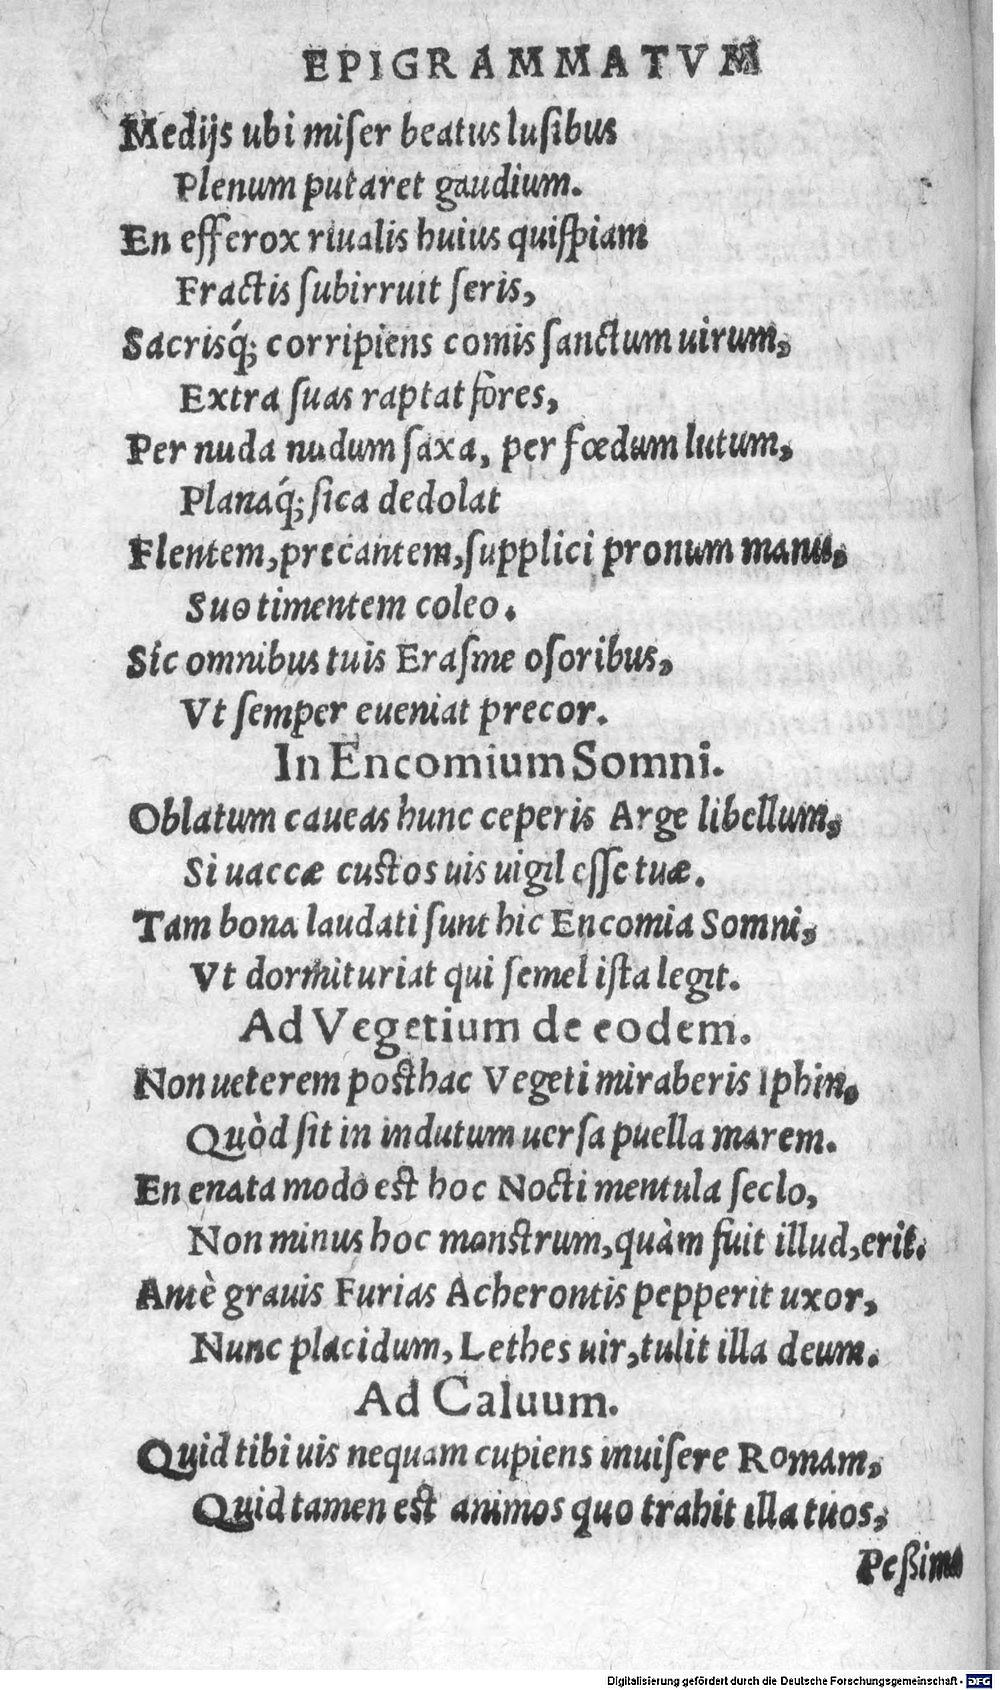 EPIGRAMMATVM
Medijs ubi miſer beatus luſibus
Plenum putaret gaudium.
En efferox riualis huius quiſpiam
Fractis ſubirruit ſeris,
Sacrisq́; corripiens comis ſanctum uirum,
Extra ſuas raptat fores,
Per nuda nudum ſaxa, per fœdum lutum,
Planaq́; ſica dedolat
Flentem, precantem, ſupplici pronum manu,
Suo timentem coleo.
Sic omnibus tuis Eraſme oſoribus,
Vt ſemper eueniat precor.
In Encomium Somni.
Oblatum caueas hunc ceperis Arge libellum,
Si uaccæ custos uis uigil eſſe tuæ.
Tam bona laudati ſunt hic Encomia Somni,
Vt dormituriat qui ſemel iſta legit.
Ad Vegetium de eodem.
Non ueterem posthac Vegeti miraberis Iphin,
Quòd ſit in indutum uerſa puella marem.
En enata modo est hoc Nocti mentula ſeclo,
Non minus hoc monstrum, quàm fuit illud, erit.
Antè grauis Furias Acherontis pepperit uxor,
Nunc placidum, Lethes uir, tulit illa deum.
Ad Caluum.
Quid tibi uis nequam cupiens inuiſere Romam,
Quid tamen est animos quo trahit illa tuos,
Peßima
Digitalisierung gefördert durch die Deutsche Forschungsgemeinschaft - DFG